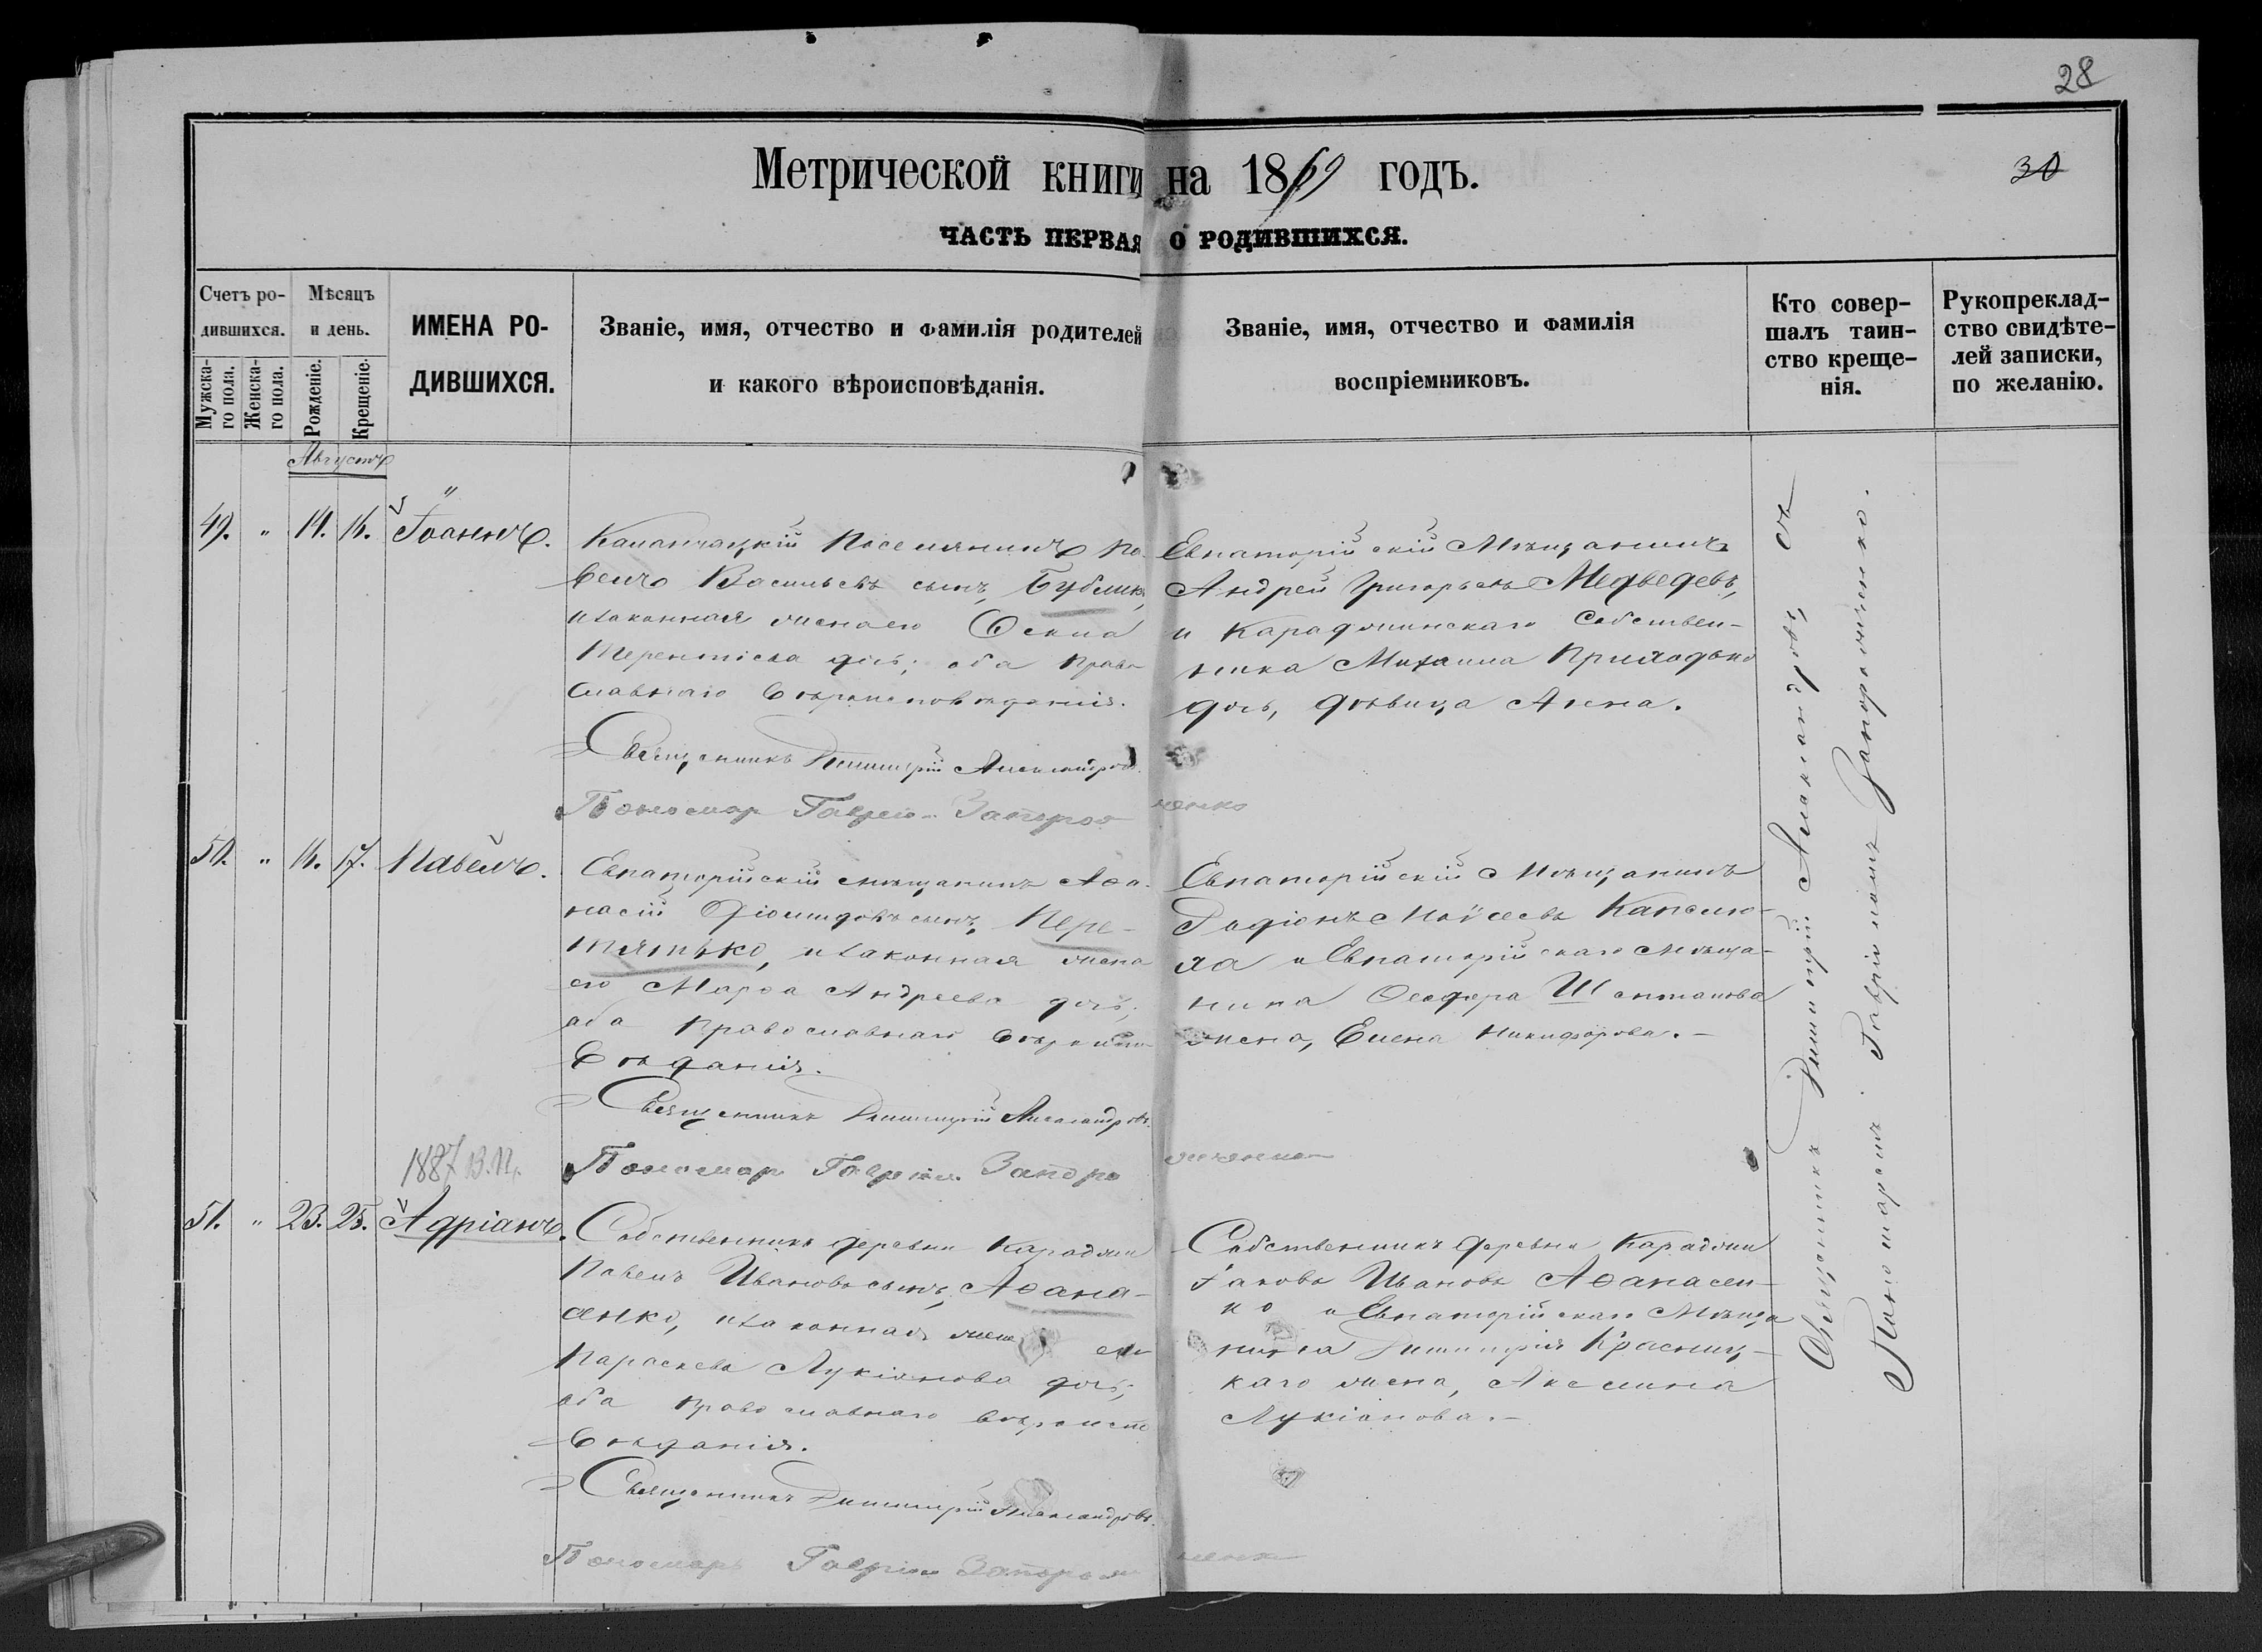 28
Метрической книги на 1869 годъ.
30
ЧАСТЬ ПЕРВАЯ О РОДИВШИХСЯ.
Счетъ ро-
дившихся.
Мужска-
го пола.
Женска-
го пола.
Мѣсяцъ
и день.
Рожденіе.
Крещеніе.
ИМЕНА РО-
ДИВШИХСЯ.
Званіе, имя, отчество и фамилія родителей
и какого вѣроисповѣданія.
Званіе, имя, отчество и фамилія
воспріемниковъ.
Кто совер-
шалъ таин-
ство креще-
нія.
Рукопреклад-
ство свидѣте-
лей записки,
по желанію.
Августъ
49. " 14. 16. Іоаннъ.
Каланчацкій Поселянинъ Па-
велъ Васильевъ сынъ, Бубликъ,
и законная жена его
Терентіева дочь; оба Право
славнаго вѣроисповѣданія.
Священникъ Димитрій Александровъ.
Пономарь Гавріилъ Запорожченко
Евпаторійскій Мѣщанинъ
Андрей Григорьевъ Медведевъ,
и Караджинскаго Собствен-
ника Михаила Приходько
дочь, дѣвица Анна.
50. " 16. 17. Павелъ.
Евпаторійскій мѣщанинъ Аѳа-
насій Діомидовъ сынъ, Пере-
тятько, и законная жена
его Марѳа Андреева дочь;
оба Православнаго вѣроиспо
вѣданія.
Священникъ Димитрій Александровъ.
Пономарь Гавріилъ Запорожченко
Евпаторійскій Мѣщанинъ
Родіонъ Моѵсеевъ
и Евпаторійскаго мѣща-
нина Ѳеодора
жена, Елена Никифорова.-
1887
51. " 23. 25. Адріанъ.
Собственникъ деревни Караджи
Павелъ Ивановъ сынъ, Аѳана-
сенко, и законная жена его
Параскева Лукіанова дочь;
оба православнаго вѣроиспо
вѣданія.
Священникъ Димитрій Александровъ.
Пономарь Гавріилъ Запорожченко
Собственникъ деревни Караджи
Іаковъ Ивановъ Аѳанасен-
ко и Евпаторійскаго Мѣща
нина Димитрія Красниц-
каго жена, Акилина
Лукіанова.-
Священникъ Димитрій Александровъ съ
Пономаремъ Гавріиломъ Запорожченко.